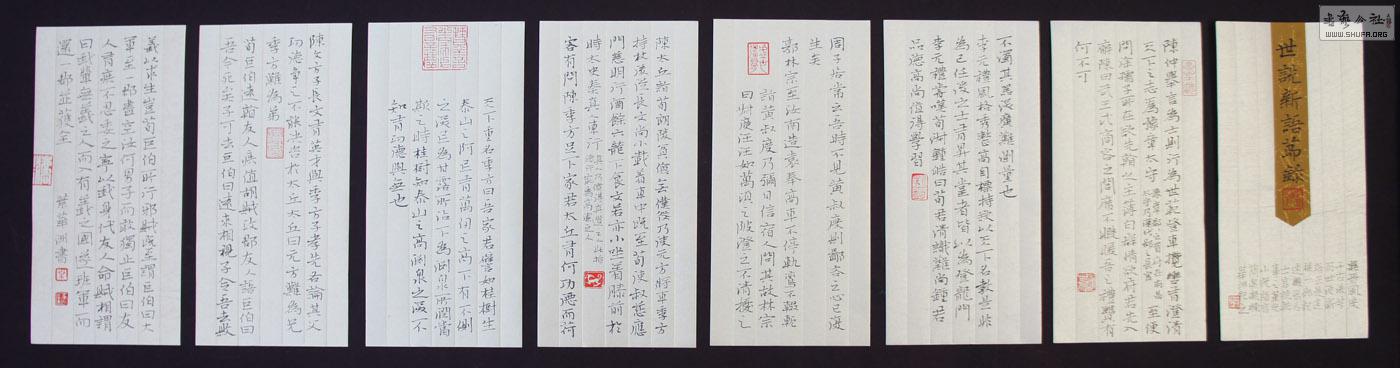 书艺公社
WWW.SHUFA.ORG
世說新語節錄
陳仲舉言為士則行為世範登車攬轡有澄清
天下之志為豫章太守
至便
問徐孺子所在欲先翰之主簿白群情欲府君先入
廨陳曰武王式商容之閭席不暇煖吾之禮賢有
何不可
不濁其器深廣難測量也
李元禮風格秀整高自標持欲以天下名教是非
為己任後之士有昇其堂者皆以為登龍門
李元禮嘗嘆荀淑鍾皓曰荀君清識難尚鍾君
品德高尚值得學習
周子居常云吾時不見黃叔度則鄙吝之心已復
生矣
郭林宗至汝南造袁奉高車不停軌鸞不輟軛
詣黃叔度乃彌日信宿人問其故林宗
曰叔度汪汪如萬頃之陂澄之不清擾之
陳太丘詣荀朗陵貧儉無僕役乃使元方將車季方
持杖後從長文尚小載着車中既至荀使叔慈應
門慈明行酒餘六龍下食文若亦小坐着膝前於
時太史奏真人東行
客有問陳季方足下家君太丘有何功德而荷
天下重名季方曰吾家君譬如桂樹生
泰山之阿上有萬仞之高下有不測
之深上為甘露所沾下為淵泉所潤當
斯之時桂樹知泰山之高淵泉之深不
知有功德與無也
陳元方子長文有英才與季方子孝先各論其父
功德爭之不能決咨於太丘太丘曰元方難為兄
季方難為弟
荀巨伯遠翰友人疾值胡賊攻郡友人語巨伯曰
吾今死矣子可去巨伯曰遠來相視子令吾去敗
義以求生豈荀巨伯所行邪賊既至謂巨伯曰大
軍至一郡盡空汝何男子而敢獨止巨伯曰友
人有疾不忍委之寧以我身代友人命賊相謂
曰我輩無義之人而入有義之國遂班軍而
還一郡並獲全
葉華洲書